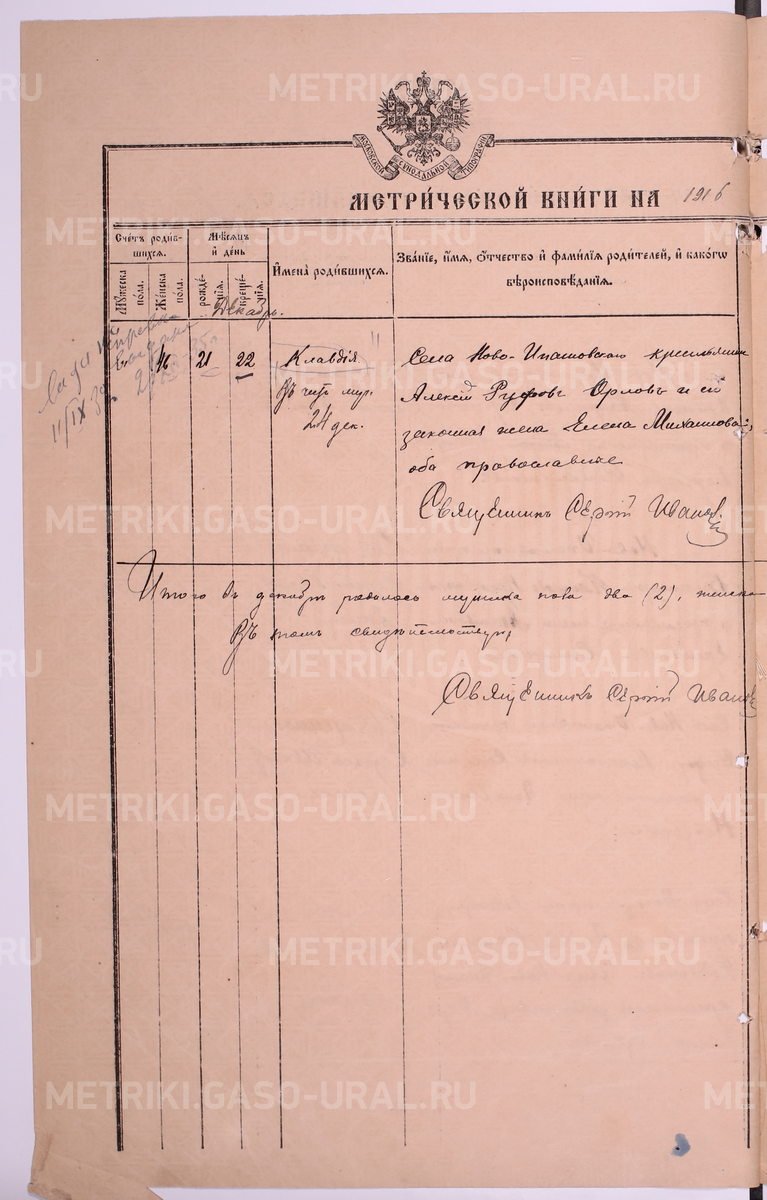 МОСКОВСКОЙ СѴНОДАЛЬНОЙ ТИПОГРАФІИ
МЕТРИ́ЧЕСКОЙ КНИ́ГИ НА 1916
Счетъ роди́вшихся.
Мужеска по́ла.
Же́нска по́ла.
Мѣ́сяцъ и҆ де́нь
рожде́нїя.
креще́нїя.
И҆мена̀ роди́вшихся.
Зва́нїе, и҆́мя, ѻ҆́тчество и҆ фами́лїя роди́телей, и҆ како́гѡ
вѣроисповѣ́данїя.
Декабрь.
46
21
22
Клавдія
Въ честь муч.
24 дек.
Села Ново-Ипатовскаго крестьянин
Алексій Руфовъ Орловъ и его
законная жена Елена Михаилова,
оба православные
Священникъ Сергій Иванов
Итого въ декабрѣ родилось мужска пола два (2), женска
Въ томъ свидѣтельствую,
Священникъ Сергій Иванов
11/IX
METRIKI.GASO-URAL.RU